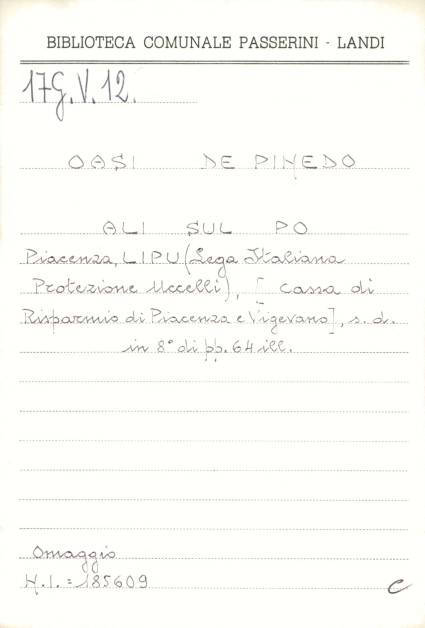 BIBLIOTECA COMUNALE PASSERINI - LANDI
17G.V.12.
OASI DE PINEDO
ALI SUL PO
Piacenza, LIPU (Lega Italiana
Protezione Uccelli), [ Cassa di
Risparmio di Piacenza e Vigevano], s. d.
in 8° di pp. 64 ill.
Omaggio
N.I. = 185609
C